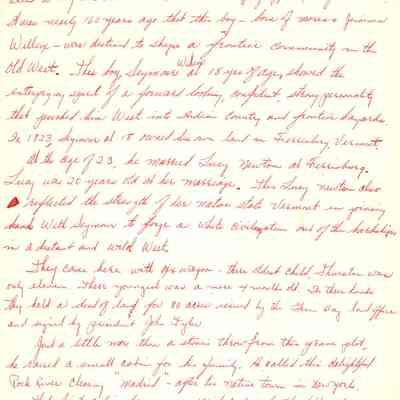 It was nearly 160 years ago that this boy - born of
Willcox - were destined to shape a frontier community in the
Old West. This boy, Seymour Wilcox at 18 yrs of age, showed the
enterprising spirit of a forward looking, confident, strong personality
that pushed him West into Indian Country and frontier
In 1823, Seymour at 18 owned his own land in Ferrisburg, Vermont,
At the age of 23, he married Lucy Newton at Ferrisburg.
Lucy was 20 years old at her marriage. This Lucy Newton also
reflected the strength of her native state Vermont in joining
hands With Seymour to forge a white Civilization out of the hardships
in a distant and wild West.
They came here with Ox wagon - their oldest child, Thurston was
only eleven. Their youngest was a mere 4 months old. In their hands
they held a deed of land for 80 acres issued by the Green Bay land office
and signed by president John Tyler.
Just a little more than a stones throw from this grave plot,
he raised a small cabin for his family. He called this delightful
Rock River Clearing "Madrid" - after his native town in New York.